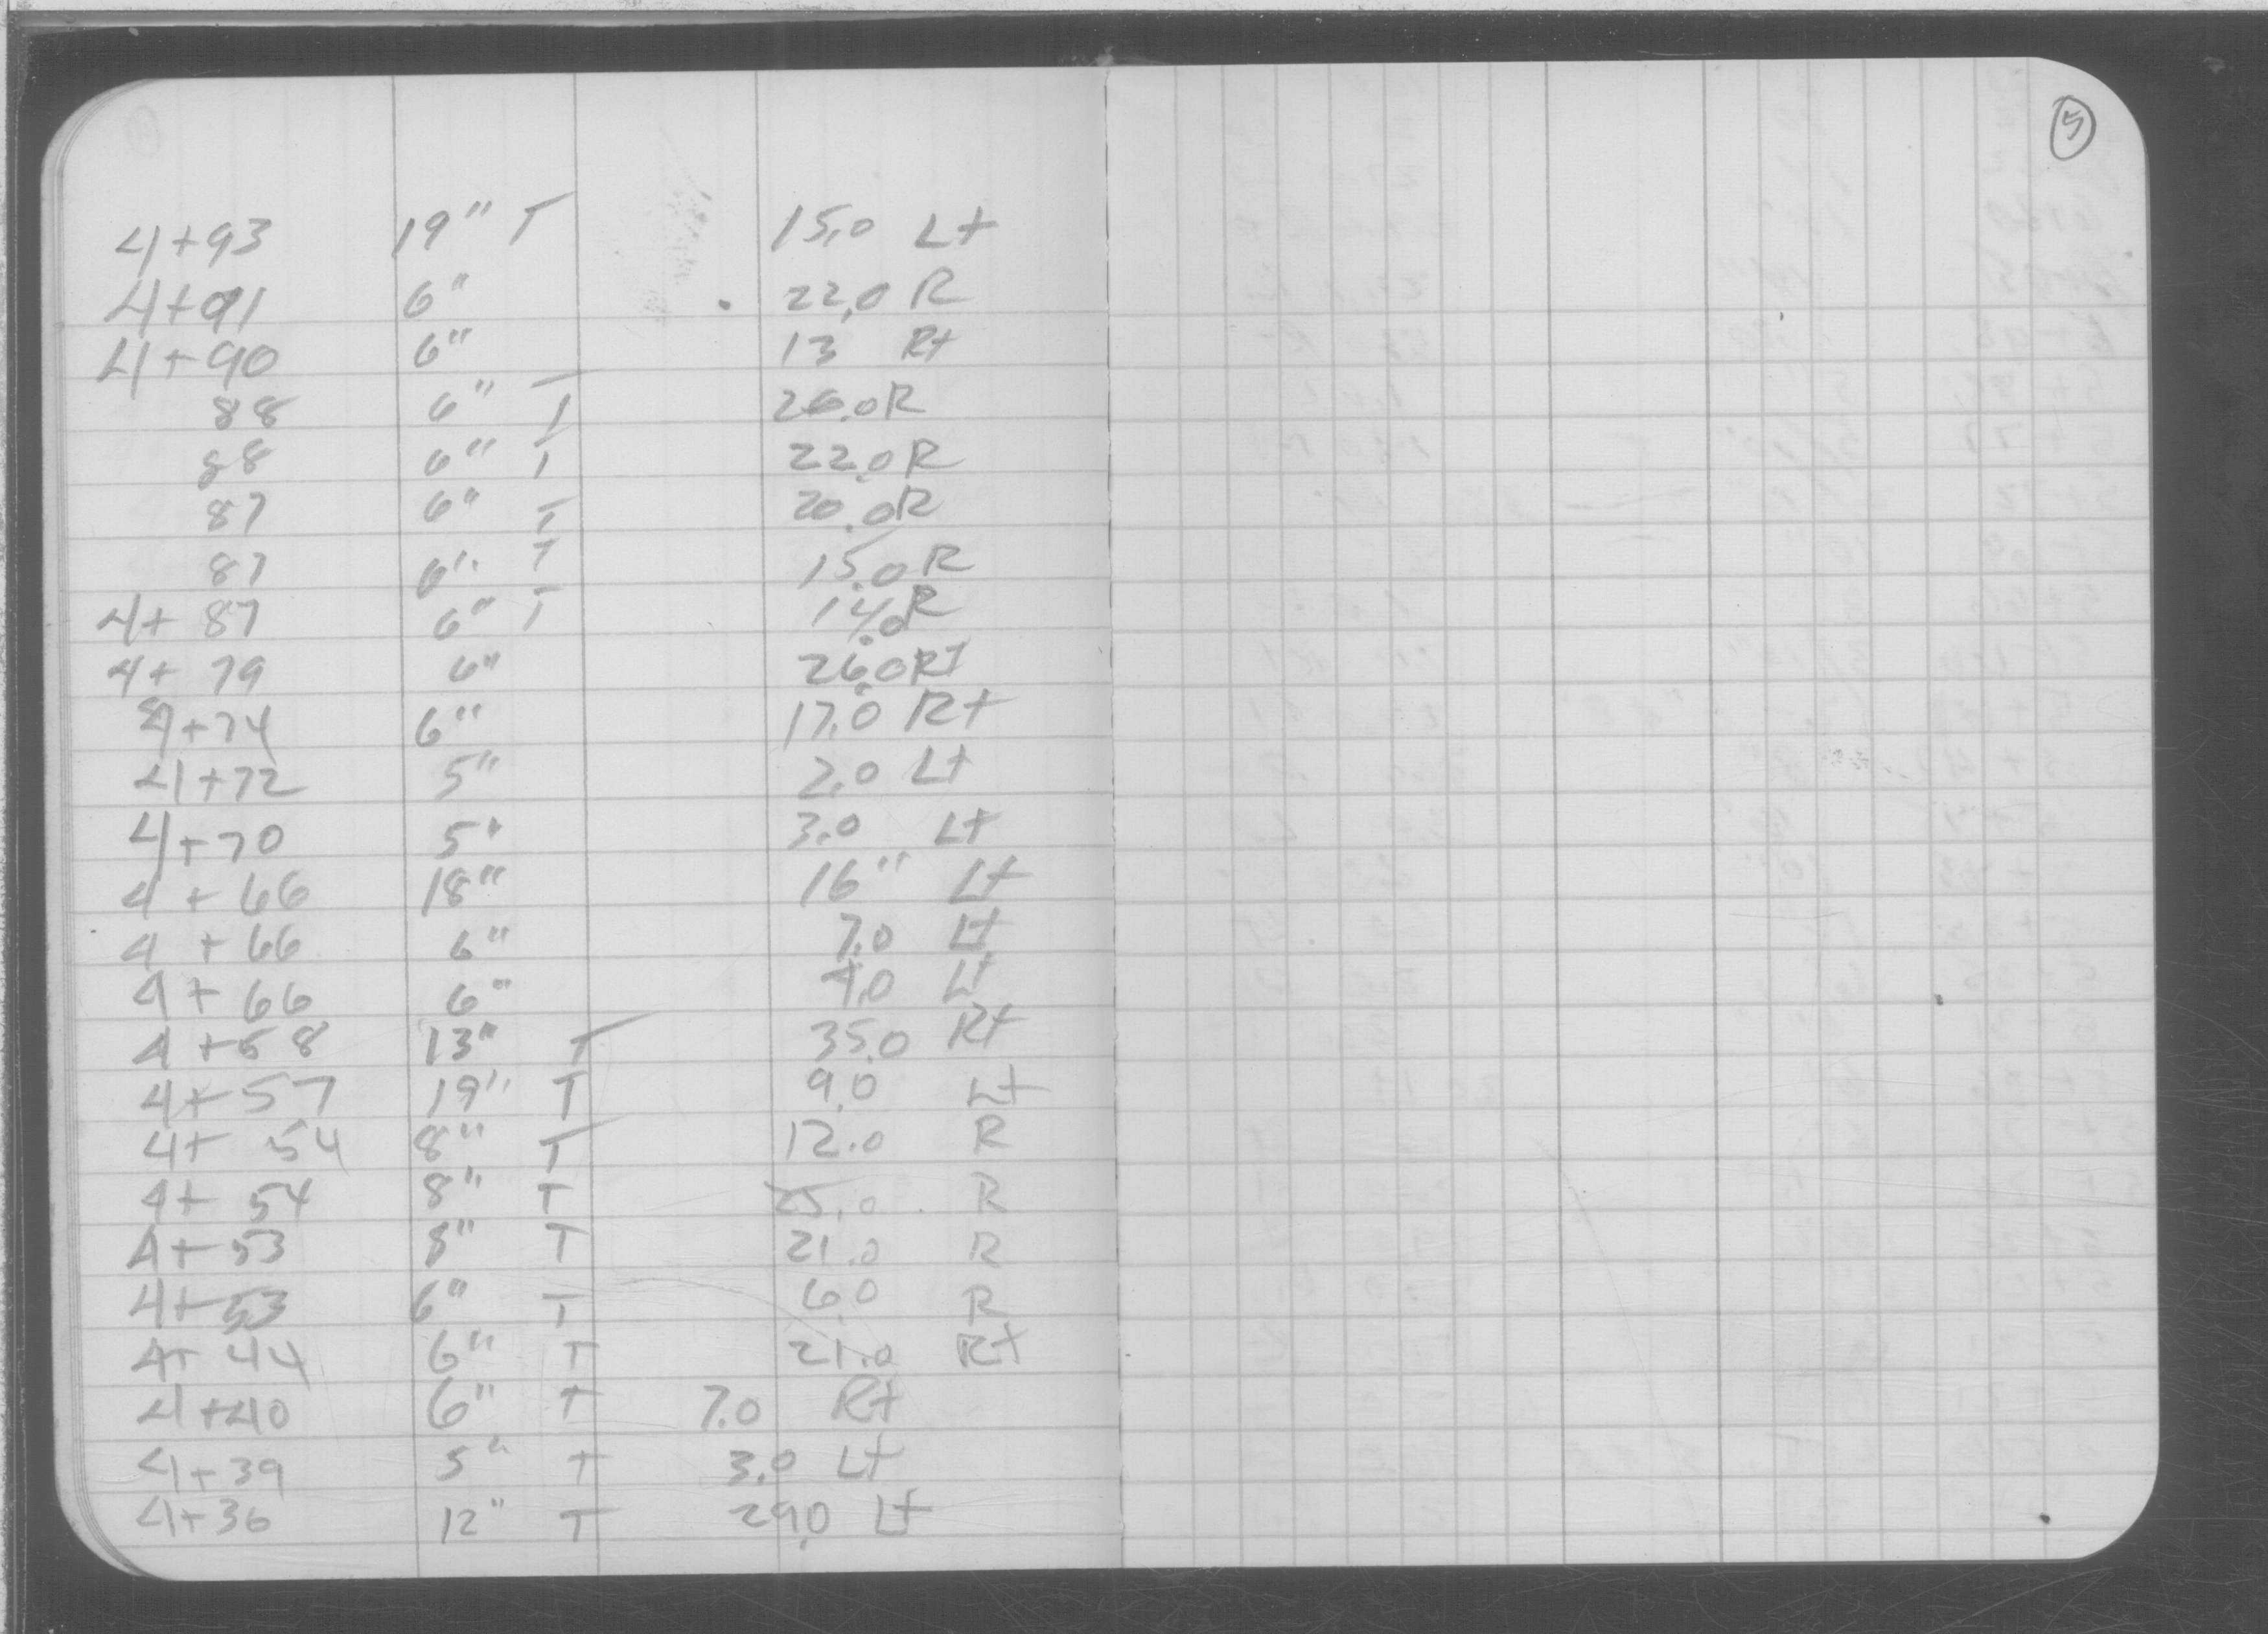 5
4+93 19" T 15.0 Lt
4+91 6" 22.0 R
4+90 6" 13 Rt
88 6" T 26.0 R
88 6" T 22.0 R
87 6" T 20.0 R
87 6" T 15.0 R
4+ 87 6" T 14.0 R
4+ 79 6" 26.0 Rt
4+74 6" 17.0 Rt
4+72 5" 2.0 Lt
4+70 5" 3.0 Lt
4 + 66 18" 16" Lt
4 + 66 6" 7.0 Lt
4 + 66 6" 4.0 Lt
4 +58 13" T 35.0 Rt
4+ 57 19" T 9.0 Lt
4+ 54 8" T 12.0 R
4+ 54 8" T 25.0 R
4+ 53 8" T 21.0 R
4+ 53 6" T 6.0 R
4+ 44 6" T 21.0 Rt
4+40 6" T 7.0 Rt
4+39 5" T 3.0 Lt
4+36 12" T 29.0 Lt